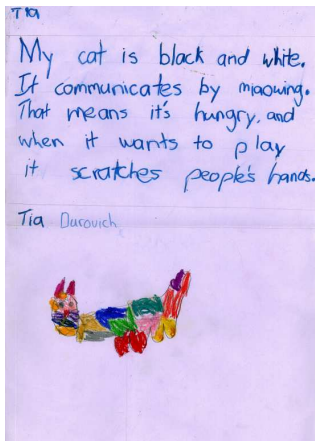 Tia
My cat is black and white.
It communicates by miaowing.
That means it's hungry, and
when it wants to play
it scratches people's hands.
Tia Durovich